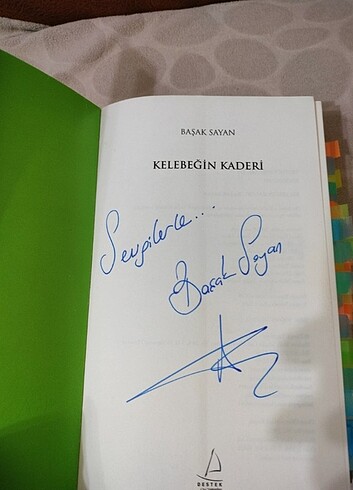 BAŞAK SAYAN
KELEBEĞİN KADERİ
Sevgilerle...
Başak Sayan
DESTEK